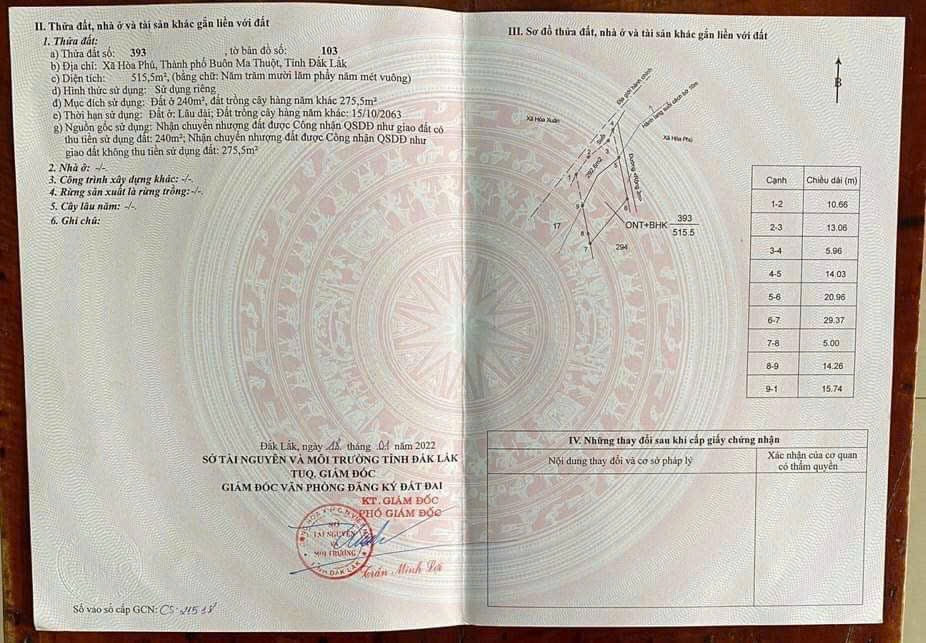 II. Thửa đất, nhà ở và tài sản khác gắn liền với đất
1. Thửa đất:
a) Thửa đất số: 393 , tờ bản đồ số: 103
b) Địa chỉ: Xã Hòa Phú, Thành phố Buôn Ma Thuột, Tỉnh Đắk Lắk
c) Diện tích: 515,5m², (bằng chữ: Năm trăm mười lăm phẩy năm mét vuông)
d) Hình thức sử dụng: Sử dụng riêng
đ) Mục đích sử dụng: Đất ở 240m², đất trồng cây hàng năm khác 275,5m²
e) Thời hạn sử dụng: Đất ở: Lâu dài; Đất trồng cây hàng năm khác: 15/10/2063
g) Nguồn gốc sử dụng: Nhận chuyển nhượng đất được Công nhận QSDĐ như giao đất có
thu tiền sử dụng đất: 240m²; Nhận chuyển nhượng đất được Công nhận QSDĐ như
giao đất không thu tiền sử dụng đất: 275,5m²
2. Nhà ở: -/-
3. Công trình xây dựng khác: -/-.
4. Rừng sản xuất là rừng trồng:-/-.
5. Cây lâu năm: -/-.
6. Ghi chú:
Đắk Lắk, ngày 18 tháng 01 năm 2022
SỞ TÀI NGUYÊN VÀ MÔI TRƯỜNG TỈNH ĐẮK LẮK
TUQ. GIÁM ĐỐC
GIÁM ĐỐC VĂN PHÒNG ĐĂNG KÝ ĐẤT ĐAI
KT. GIÁM ĐỐC
PHÓ GIÁM ĐỐC
SỞ
TÀI NGUYÊN
VÀ
MÔI TRƯỜNG
TỈNH ĐẮK LẮK
Trần Minh Lợi
Số vào sổ cấp GCN: CS
III. Sơ đồ thửa đất, nhà ở và tài sản khác gắn liền với đất
B
Địa giới hành chính
Hành lang suối cách bờ 10m
Xã Hòa Xuân
Xã Hòa Phú
Suối
292.6m2
1
2
3
4
5
6
7
8
9
17
294
ONT+BHK 393
515.5
Cạnh Chiều dài (m)
1-2 10.66
2-3 13.06
3-4 5.96
4-5 14.03
5-6 20.96
6-7 29.37
7-8 5.00
8-9 14.26
9-1 15.74
IV. Những thay đổi sau khi cấp giấy chứng nhận
Nội dung thay đổi và cơ sở pháp lý
Xác nhận của cơ quan
có thẩm quyền